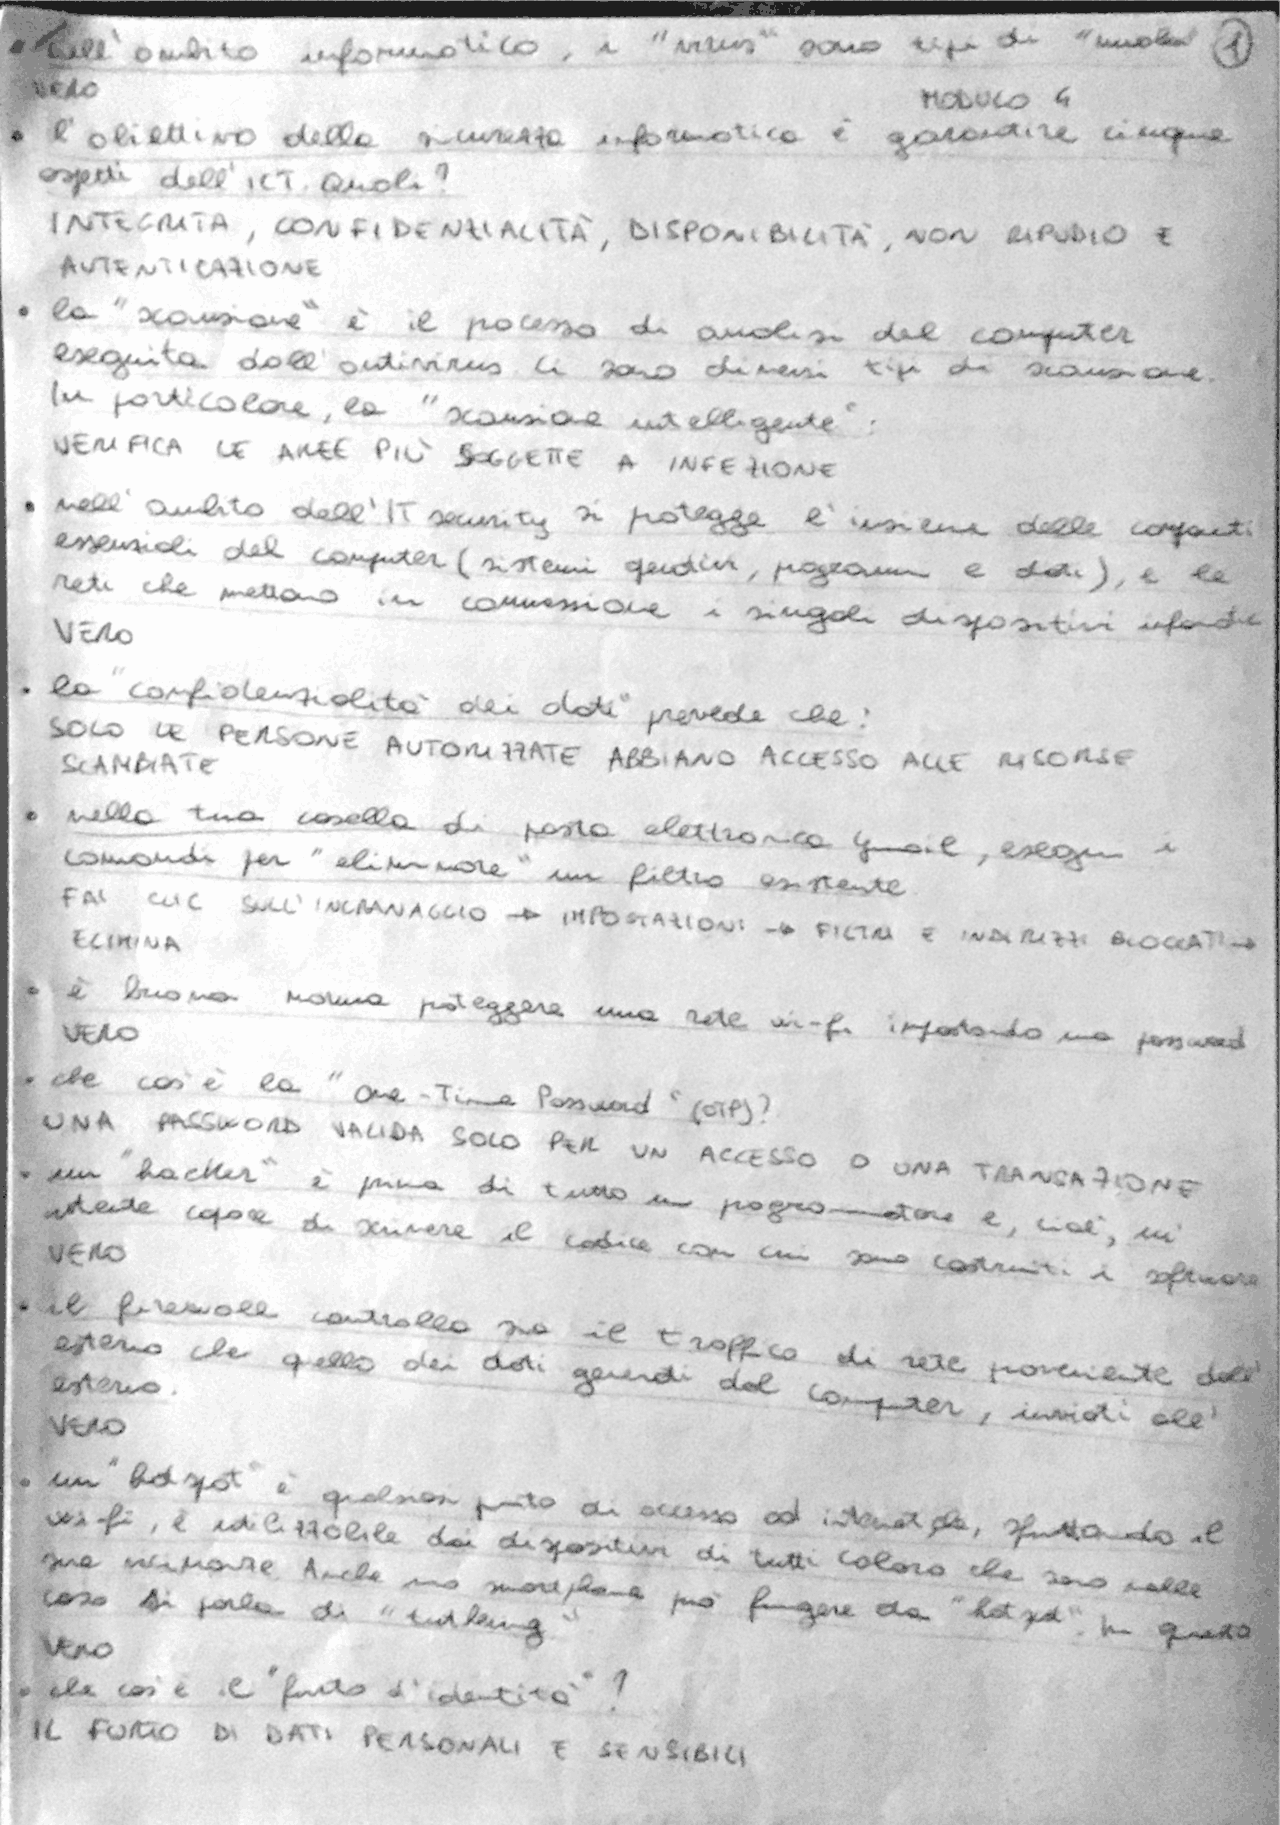 • Nell'ambito informatico, i "virus" sono tipi di 1
VERO
MODULO 4
• l'obiettivo della sicurezza informatica è garantire cinque
aspetti dell'ICT. Quali?
INTEGRITÀ, CONFIDENZIALITÀ, DISPONIBILITÀ, NON RIPUDIO E
AUTENTICAZIONE
• la "scansione" è il processo di analisi del computer
eseguita dall'antivirus. Ci sono diversi tipi di scansione.
In particolare, la "scansione intelligente":
VERIFICA LE AREE PIÙ SOGGETTE A INFEZIONE
• nell'ambito dell'IT security si protegge l'insieme delle componenti
essenziali del computer (sistemi operativi, programmi e dati), e le
reti che mettono in connessione i singoli dispositivi informatici
VERO
• la "confidenzialità dei dati" prevede che:
SOLO LE PERSONE AUTORIZZATE ABBIANO ACCESSO ALLE RISORSE
SCAMBIATE
• nella tua casella di posta elettronica Gmail, esegui i
comandi per "eliminare" un filtro esistente
FAI CLIC SULL'INGRANAGGIO → IMPOSTAZIONI → FILTRI E INDIRIZZI BLOCCATI →
ELIMINA
• è buona norma proteggere una rete wi-fi impostando una password
VERO
• che cos'è la "One-Time Password" (OTP)?
UNA PASSWORD VALIDA SOLO PER UN ACCESSO O UNA TRANSAZIONE
• un "hacker" è prima di tutto un programmatore e, cioè, un
utente capace di scrivere il codice con cui sono costruiti i software
VERO
• il firewall controlla sia il traffico di rete proveniente dall'
esterno che quello dei dati generati dal computer, inviati all'
esterno.
VERO
• un "hotspot" è qualsiasi punto di accesso ad internet che, sfruttando il
wi-fi, è utilizzabile dai dispositivi di tutti coloro che sono nelle
sue vicinanze. Anche uno smartphone può fungere da "hotspot". In questo
caso si parla di "tethering"
VERO
• che cos'è il "furto d'identità"?
IL FURTO DI DATI PERSONALI E SENSIBILI